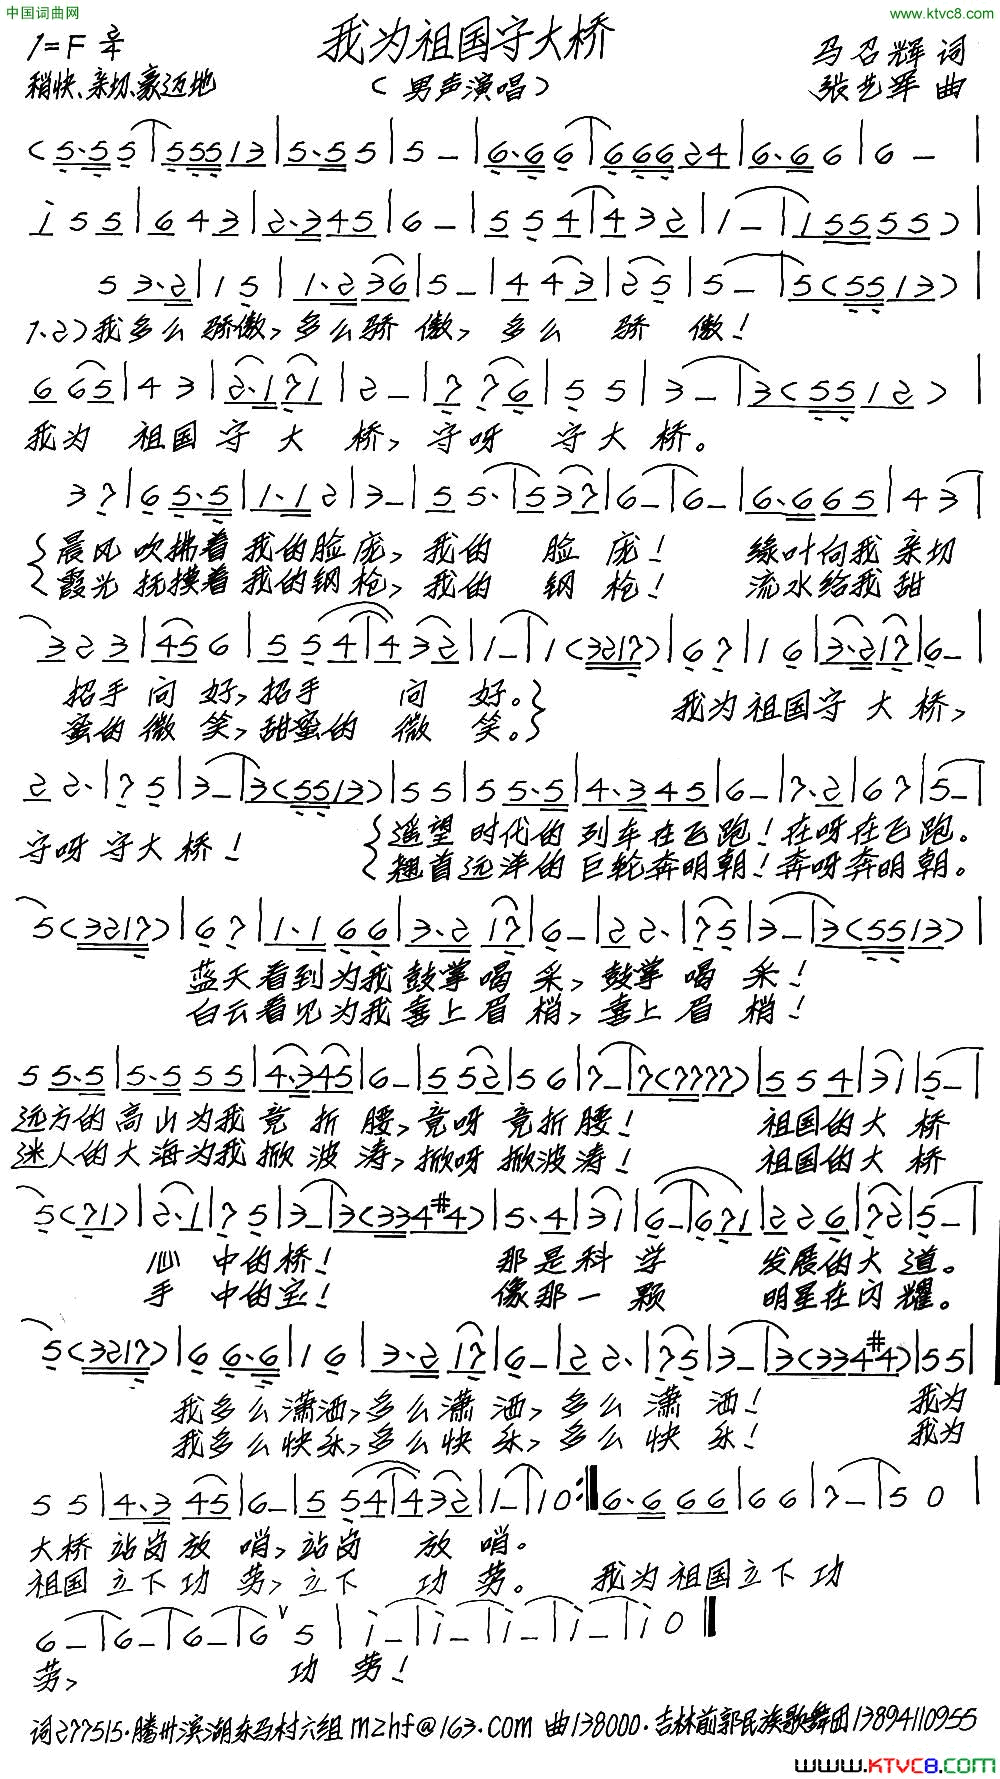 中国词曲网
www.ktvc8.com
我为祖国守大桥
1=F 2/4
稍快、亲切、豪迈地
(男声演唱)
马召辉 词
张艺军 曲
(5·55|55513|5·55|5–|6·66|66624|6·66|6–|
i55|643|2·345|6–|554|432|1–|15555)|
53·2|15|1·236|5–|443|25|5–|5(5513)|
1、2)我多么骄傲,多么骄傲,多么骄傲!
665|43|2·171|2–|776|55|3–|3(5512)|
我为祖国守大桥,守呀守大桥。
37|65·5|1·12|3–|55·|537|6–|6–|6·665|43|
晨风吹拂着我的脸庞,我的脸庞! 绿叶向我亲切
霞光抚摸着我的钢枪,我的钢枪! 流水给我甜
323|456|554|432|1–|1(3217)|67|16|3·217|6–|
招手问好,招手问好。 我为祖国守大桥,
蜜的微笑,甜蜜的微笑。
22·|75|3–|3(5513)|55|55·5|4·345|6–|7·2|67|5–|
守呀守大桥! 遥望时代的列车在飞跑!在呀在飞跑。
翘首远洋的巨轮奔明朝!奔呀奔明朝。
5(3217)|67|1·166|3·217|6–|22·|75|3–|3(5513)|
蓝天看到为我鼓掌喝采,鼓掌喝采!
白云看见为我喜上眉梢,喜上眉梢!
55·5|5·555|4·345|6–|552|56|7–|7(7777)|554|31|5–|
远方的高山为我竞折腰,竞呀竞折腰! 祖国的大桥
迷人的大海为我掀波涛,掀呀掀波涛! 祖国的大桥
5(71)|2·1|75|3–|3(334#4)|5·4|31|6–|671|226|72|5–|
心中的桥! 那是科学发展的大道。
手中的宝! 像那一颗明星在闪耀。
5(3217)|66·6|16|3·217|6–|22·|75|3–|3(334#4)|55|
我多么潇洒,多么潇洒,多么潇洒! 我为
我多么快乐,多么快乐,多么快乐! 我为
55|4·345|6–|554|432|1–|10:‖6·666|66|7–|50|
大桥站岗放哨,站岗放哨。
祖国立下功劳,立下功劳。 我为祖国立下功
6–|6–|6–|6∨5|i–|i–|i–|i–|i0‖
劳, 功劳!
词277515·滕州滨湖东马村六组mzhf@163.com 曲138000·吉林前郭民族歌舞团13894110955
www.KTVC8.com